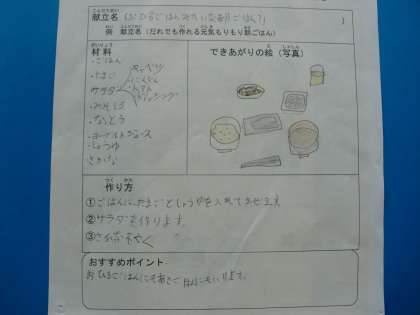 こんだてめい
献立名 (おひるごはんみたいな朝ごはん?)
例 献立名 (だれでも作れる元気もりもり朝ごはん)
ざいりょう
材料
・ごはん
・たまご
・サラダ
キャベツ
にんじん
トマト
ドレッシング
・みそしる
・なっとう
・ヨーグルトジュース
・しょうゆ
・さかな
できあがりの絵(写真)
作り方
①ごはんにたまごとしょうゆを入れてまぜます
②サラダを作ります。
③さかなをやく
おすすめポイント
おひるごはんにもあさごはんにもいけます。